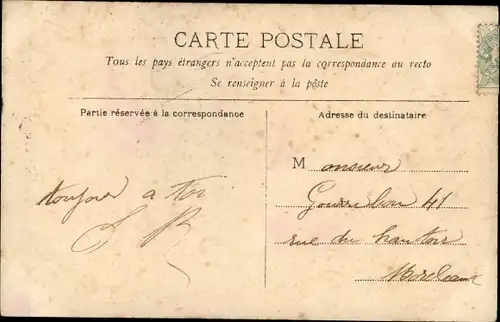 CARTE POSTALE
Tous les pays étrangers n'acceptent pas la correspondance au recto
Se renseigner à la pôste
Partie réservée à la correspondance
Adresse du destinataire
Monsieur
41
toujours a toi
rue du hautoir
Bordeaux